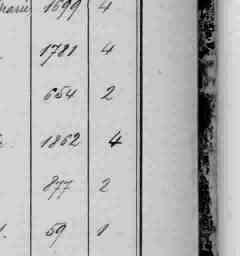 1699 4
1781 4
654 2
1862 4
877 2
59 1